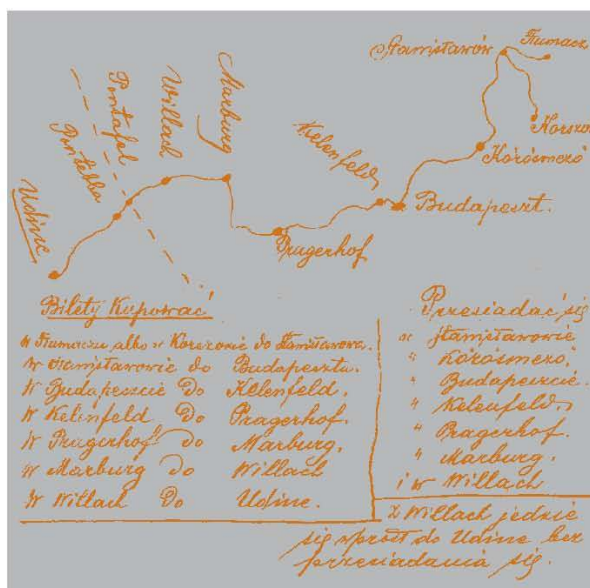 Stanisławów
Tłumacz
Korszow
Kelenfeld
Körösmezö
Marburg
Willach
Pontafel
Pontebba
Budapeszt.
Udine
Pragerhof
Bilety Kupować
w Tłumaczu albo w Korszowie do Stanisławowa.
w Stanisławowie do Budapesztu.
W Budapeszcie Do Kelenfeld.
W Kelinfeld Do Pragerhof.
W Pragerhof do Marburg.
W Marburg do Willach
W Willach Do Udine.
Przesiadać się
w Stanisławowie
" Körösmezö.
" Budapeszcie.
" Kelenfeld.
" Pragerhof.
" Marburg.
i w Willach
z Willach jedzie
się wprost do Udine bez
przesiadania się.